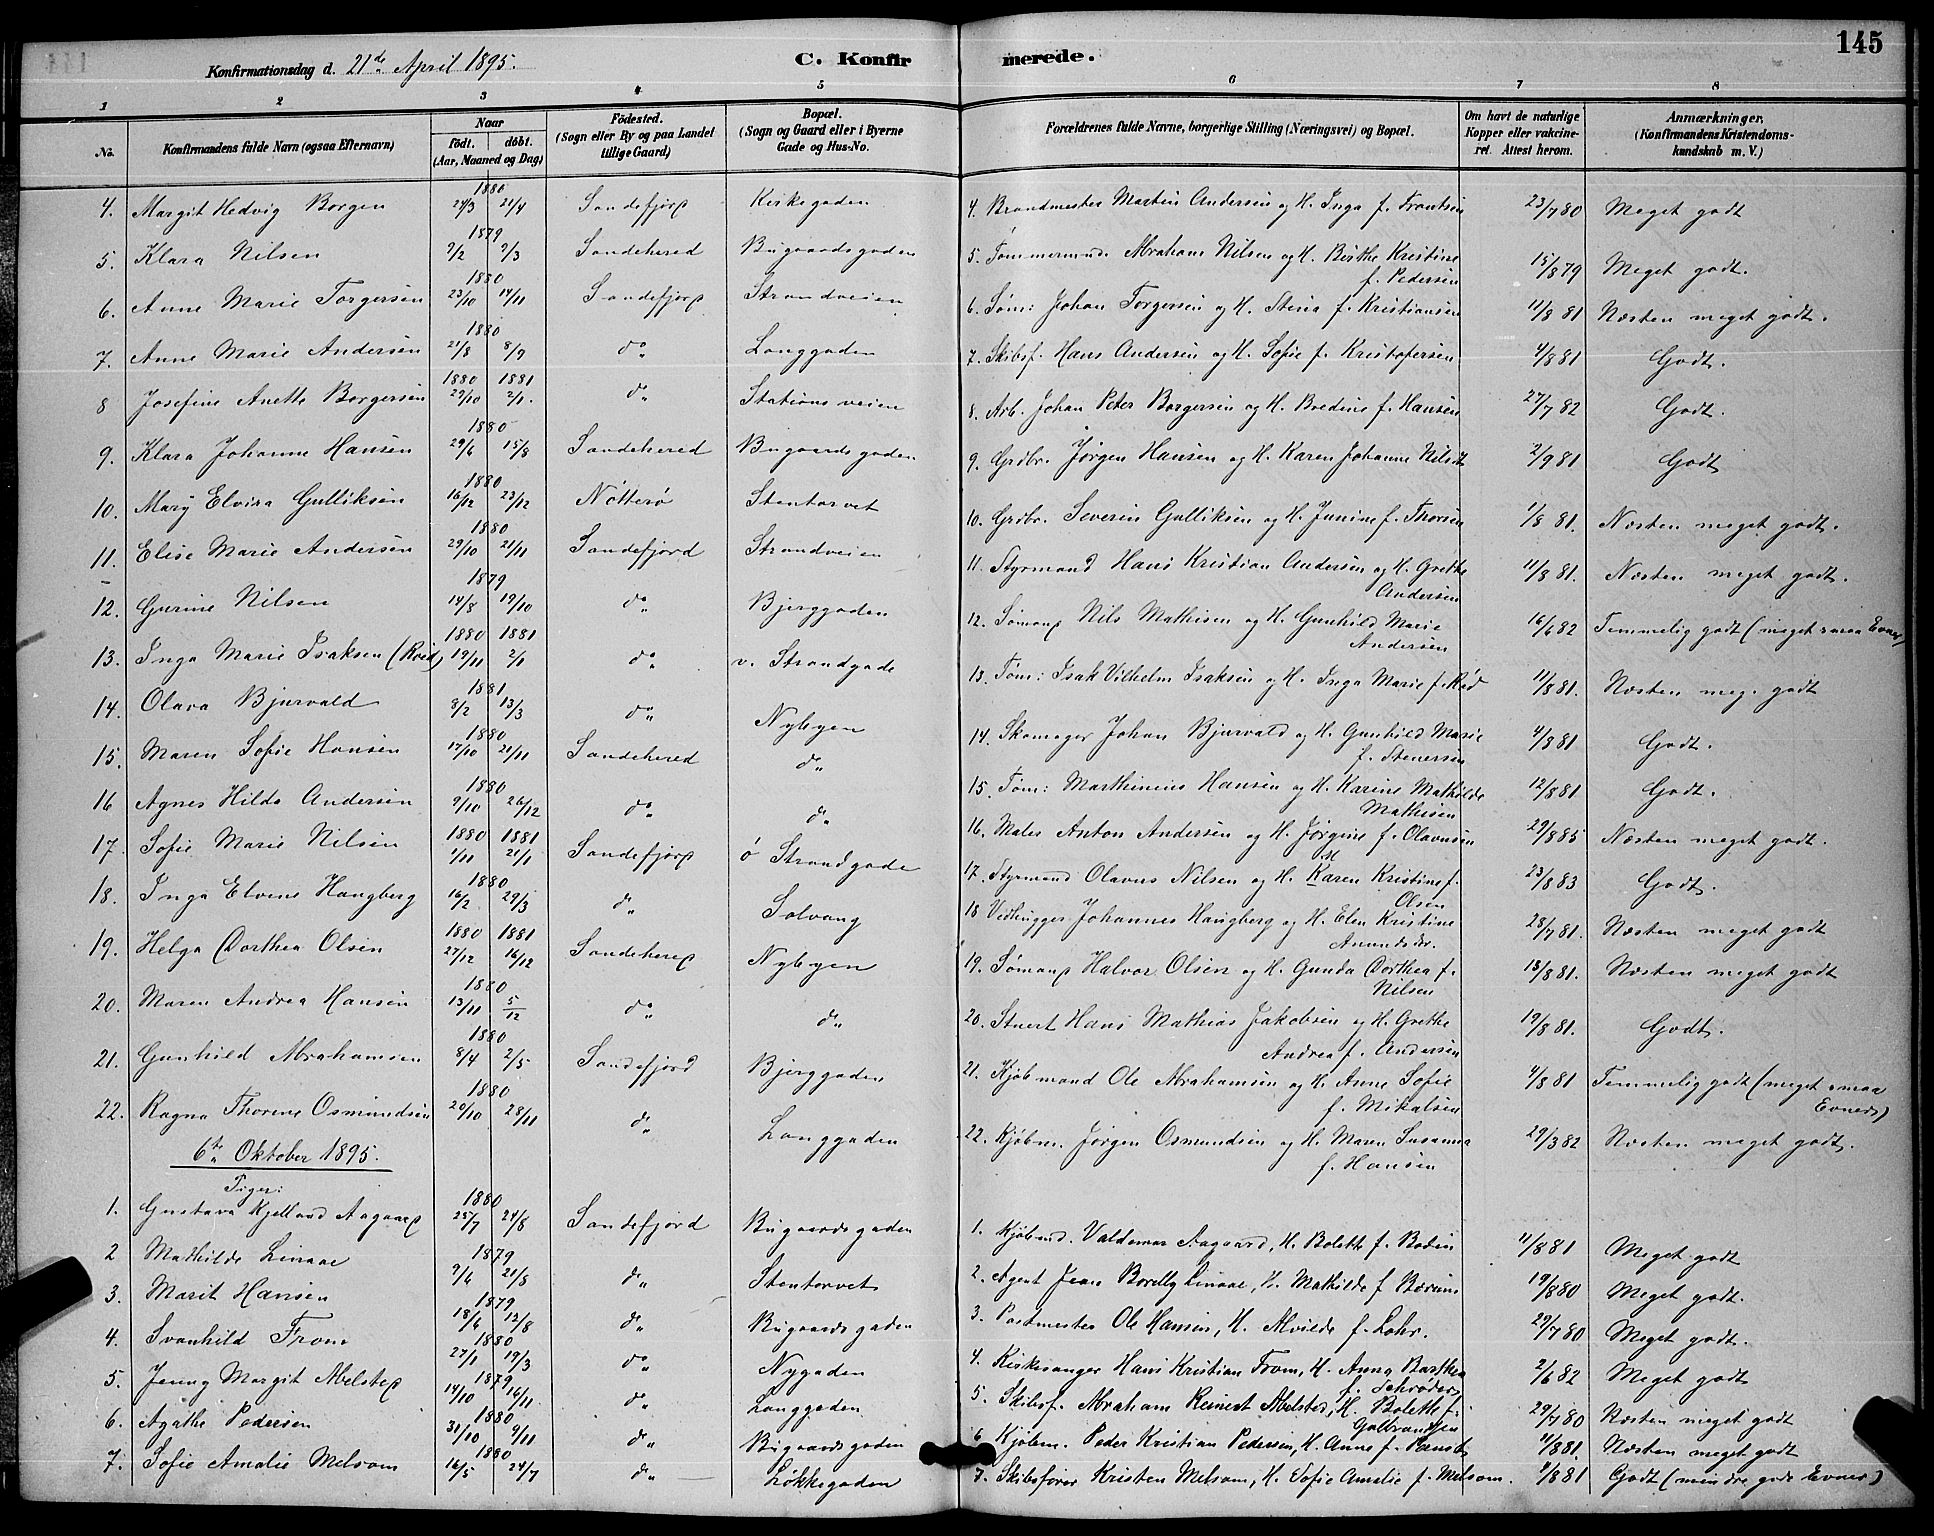 145
Konfirmationsdag d. 21de April 1895. C. Konfirmerede.
1 2 3 4 5 6 7 8
No. Konfirmandens fulde Navn (ogsaa Efternavn) Naar født. døbt. (Aar, Maaned og Dag) Fødested. (Sogn eller By og paa Landet tillige Gaard) Bopæl. (Sogn og Gaard eller i Byerne Gade og Hus-No. Forældrenes fulde Navne, borgerlige Stilling (Næringsvei) og Bopæl. Om havt de naturlige Kopper eller vakcineret. Attest herom. Anmærkninger, (Konfirmandens Kristendomskundskab m. V.)
1880
4. Margit Hedvig Borgen 24/3 21/4 Sandefjord Kirkegaden 4. Brandmester Martin Andersen og H. Inga f. Frantsen 23/7 80 Meget godt
1879
5. Klara Nilsen 2/2 9/3 Sandehered Bugaardsgaden 5. Tømmermand Abraham Nilsen og H. Birthe Kristine f. Pedersen 15/8 79 Meget godt.
1880
6. Anne Marie Torgersen 23/10 14/11 Sandefjord Strandveien 6. Søm: Johan Torgersen og H. Stina f. Kristiansen 11/8 81 Næsten meget godt.
1880
7. Anne Marie Andersen 21/8 8/9 do Langgaden 7. Skibsf. Hans Andersen og H. Sofie f. Kristofersen 4/8 81 Godt.
1880 1881
8 Josefine Anette Borgersen 29/10 2/1. do Stationsveien 8. Arb. Johan Peter Borgersen og H. Bredine f. Hansen 27/7 82 Godt.
1880
9. Klara Johanne Hansen 29/6 15/8 Sandehered Bugaardsgaden 9. Grdbr. Jørgen Hansen og H. Karen Johanne Nilsdt 2/9 81 Godt
1880
10. Mary Elvira Gulliksen 16/12 23/12 Nøtterø Stentorvet 10. Grdbr. Severin Gulliksen og H. Janine f. Thorsen 1/8 81. Næsten meget godt.
1880
11. Elise Marie Andersen 29/10 21/11 Sandefjord Strandveien 11. Styrmand Hans Kristian Andersen og H. Grethe Andersen 11/8 81. Næsten meget godt.
1879
12. Gurine Nilsen 14/8 19/10 do Bjerggaden 12. Sømand Nils Mathisen og H. Gunhild Marie Andersen 16/6 82 Temmelig godt (meget smaa Evner)
1880 1881
13. Inga Marie Isaksen (Roed) 19/11 2/1 do v. Strandgade 13. Tøm: Isak Vilhelm Isaksen og H. Inga Marie f. Rød 11/8 81. Næsten meg. godt
1881
14. Olava Bjurvald 8/2 13/3 do Nybyen 14. Skomager Johan Bjurvald og H. Gunhild Marie f. Stenersen 4/8 81 Godt.
1880
15. Maren Sofie Hansen 17/10 21/11 Sandehered do 15. Tøm: Marthinius Hansen og H. Karine Mathilde Mathisen 12/8 81 Godt.
1880
16 Agnes Hilda Andersen 9/10 26/12 do do 16. Maler Anton Andersen og H. Jørgine f. Olavesen 29/8 85 Næsten meget godt.
1880 1881
17. Sofie Marie Nilsen 1/11 21/1 Sandefjord ø Strandgade 17. Styrmand Olavus Nilsen og H. Karen Kristine f. Olsen 23/8 83 Godt.
1880
18. Inga Elvene Haugberg 16/2 29/3 do Solvang 18 Vedhugger Johannes Haugberg og H. Elen Kristine Amundsdr. 28/7 81. Næsten meget godt
1880 1881
19. Helga Dorthea Olsen 27/12 16/12 Sandehered Nybyen 19. Sømand Halvor Olsen og H. Gunda Dorthea f. Nilsen 13/8 81. Næsten meget godt
1880
20. Maren Andrea Hansen 13/11 5/12 do do 20. Stuert Hans Mathias Jakobsen og H. Grethe Andrea f. Andersen 19/8 81. Godt.
1880
21. Gunhild Abrahamsen 8/4 2/5 Sandefjord Bjerggaden 21. Kjøbmand Ole Abrahamsen og H. Anne Sofie f. Mikalsen 4/8 81 Temmelig godt (meget smaa Evner)
1880
22. Ragna Thorene Osmundsen 20/10 28/11 do Langgaden 22. Kjøbm. Jørgen Osmundsen og H. Maren Susanna f. Hansen 29/3 82 Næsten meget godt.
6te Oktober 1895.
Piger:
1880
1. Gustava Kjelland Aagaard 25/7 24/8 Sandefjord Bugaardsgaden 1. Kjøbmd. Valdemar Aagaard, H. Bolette f. Bodin 11/8 81 Meget godt
1879
2 Mathilde Linaae 9/6 21/8 do Stentorvet 2. Agent Jean Borelly Linaae, H. Mathilde f. Bærum 19/8 80 Meget godt.
1879
3. Marit Hansen 18/6 12/8 do Bugaardsgaden 3. Postmester Ole Hansen, H. Alvilde f. Lohr. 29/7 80 Meget godt.
1880
4. Svanhild From 27/1 19/3 do Nygaden 4. Kirkesanger Hans Kristian From, H. Anna Barthea f. Schrøder 2/6 82 Meget godt
1879
5. Jenny Margit Abelsted 14/10 16/11 do Langgaden 5. Skibsf. Abraham Reinert Abelsted, H. Bolette f. Gulbrandsen 29/7 80 Næsten meget godt
1880
6. Agathe Pedersen 31/10 9/11 do Bugaardsgaden 6 Kjøbm. Peder Kristian Pedersen, H. Anne f. 11/8 81. Næsten meget godt
1880
7. Sofie Amalie Melsom 16/5 24/7 do Løkkegaden 7. Skibsfører Kristen Melsom, H. Sofie Amalie f. Melsom. 9/8 81 Godt (mindre gode Evner)